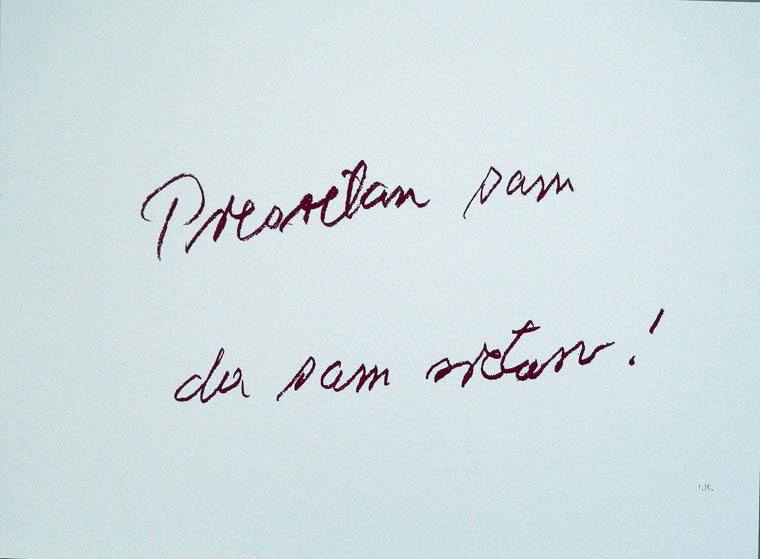 Presretan sam
da sam sretan!
I.K.